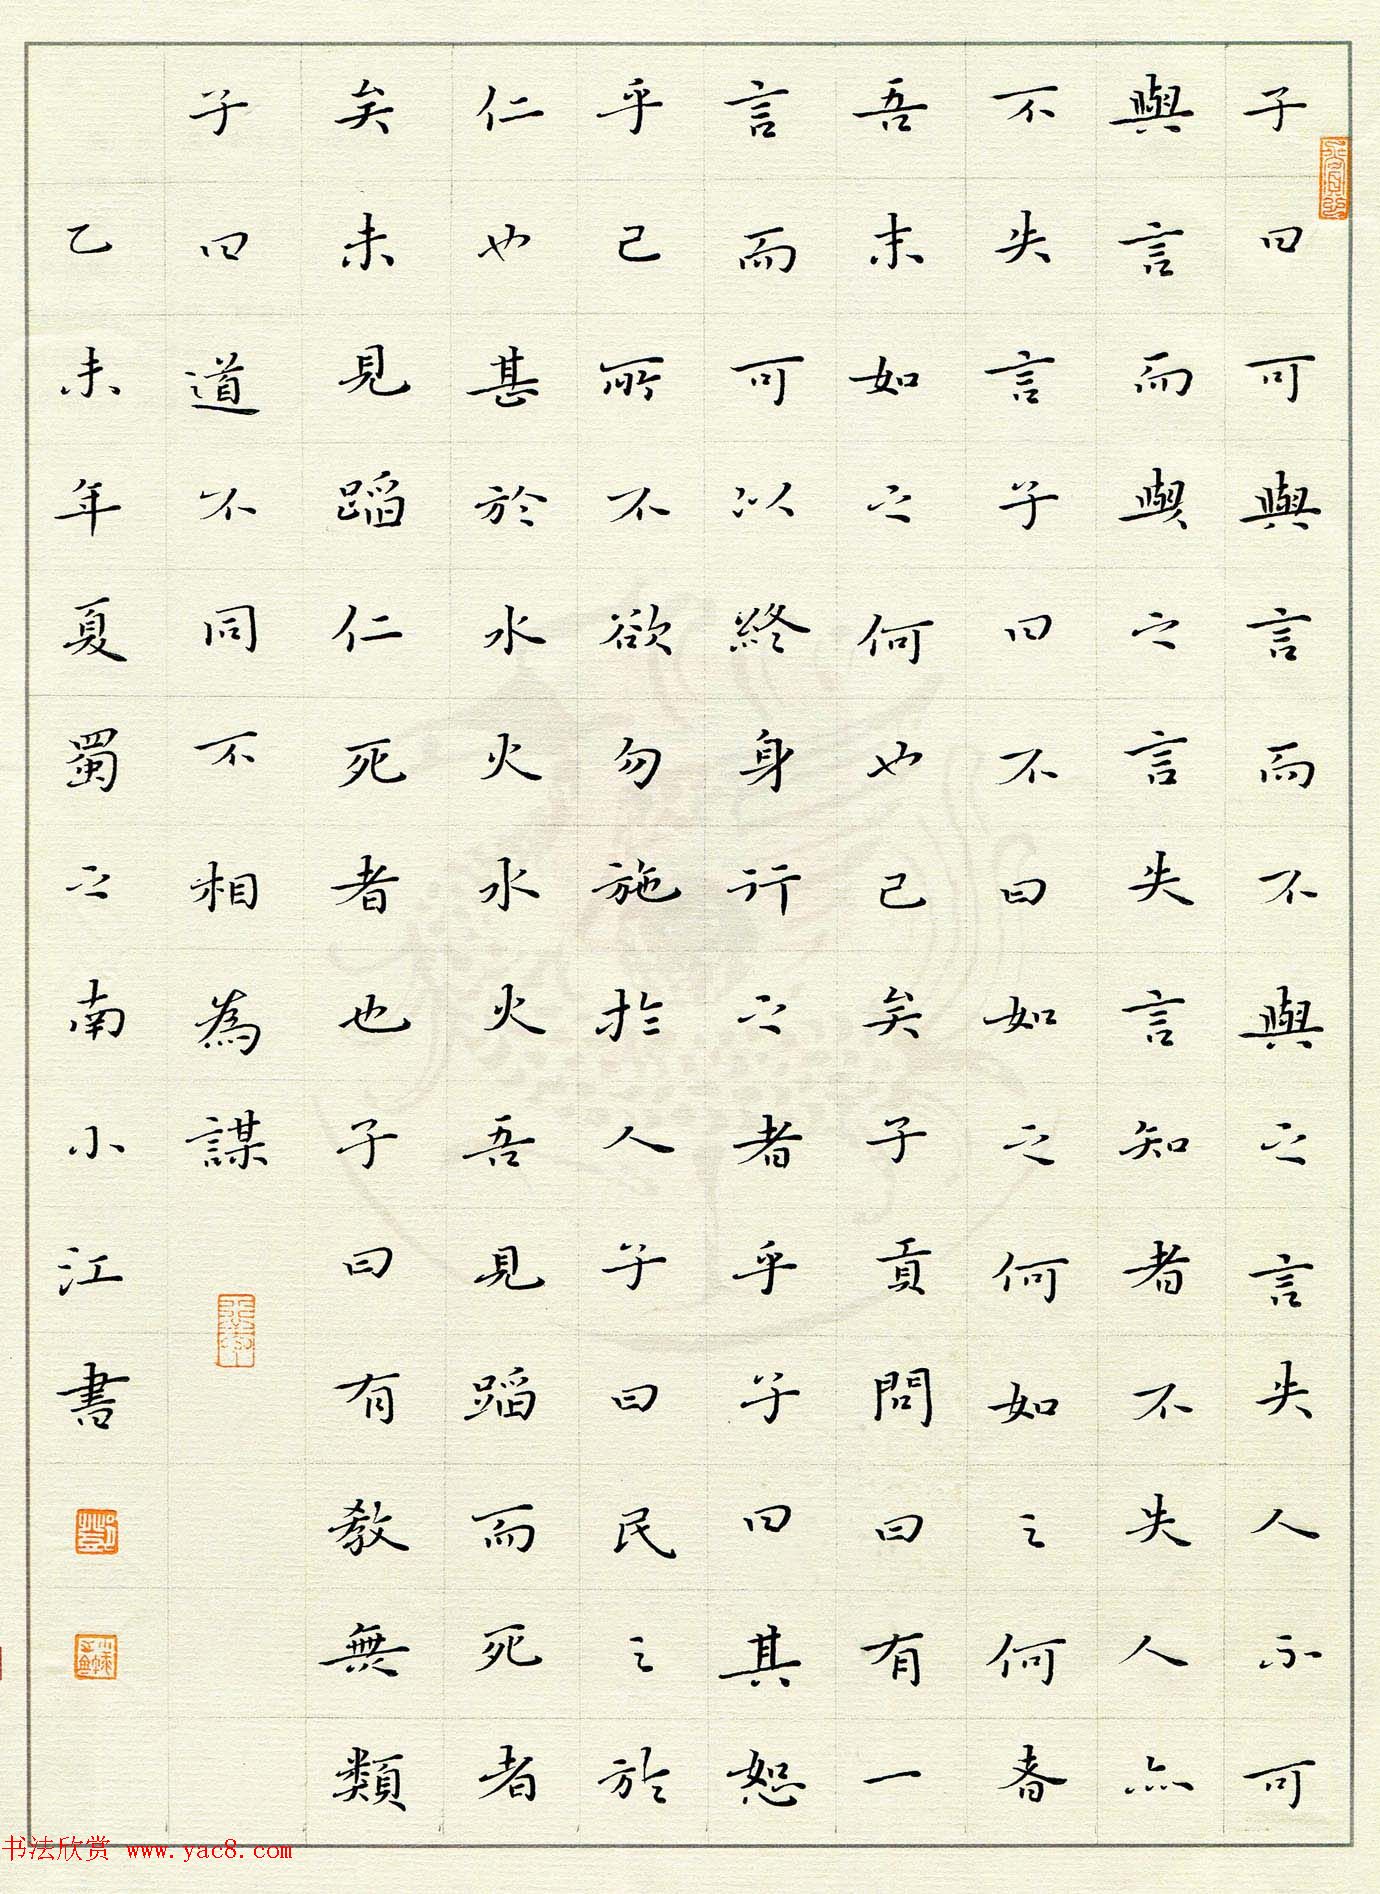 子曰可與言而不與之言失人不可
與言而與之言失言知者不失人亦
不失言子曰不曰如之何如之何者
吾末如之何也已矣子貢問曰有一
言而可以終身行之者乎子曰其恕
乎己所不欲勿施於人子曰民之於
仁也甚於水火水火吾見蹈而死者
矣未見蹈仁死者也子曰有教無類
子曰道不同不相為謀
乙未年夏蜀之南小江書
书法欣赏 www.yac8.com